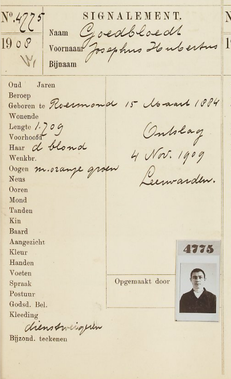 No. 4775 SIGNALEMENT.
1908 Naam Goedbloedt
Voornaam Josephus Hubertus
Bijnaam
Oud Jaren
Beroep
Geboren te Roermond 15 Maart 1884
Wonende
Lengte 1.709 Ontslag
Voorhoofd
Haar d blond 4 Nov. 1909
Wenkbr.
Oogen m.orange groen Leeuwarden.
Neus
Ooren
Mond
Tanden
Kin
Baard
Aangezicht
Kleur 4775
Handen
Voeten
Spraak Opgemaakt door
Postuur
Godsd. Bel.
Kleeding
dienstweigeren
Bijzond. teekenen